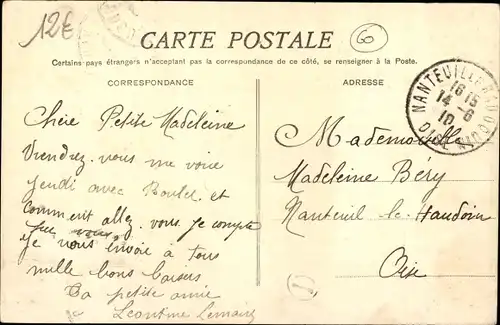 12E
60
CARTE POSTALE
Certains pays étrangers n'acceptant pas la correspondance de ce côté, se renseigner à la Poste.
CORRESPONDANCE
Chère Petite Madeleine
Viendrez-vous me voir
jeudi avec et
comment allez-vous. Je compte
Je vous envoie à tous
mille bons baisers
Ta petite amie
Leontine
ADRESSE
NANTEUIL-LE-HAUDOUIN
16 15
14 -6
10
OISE
Mademoiselle
Madeleine Béry
Nanteuil le Haudoin
Oise